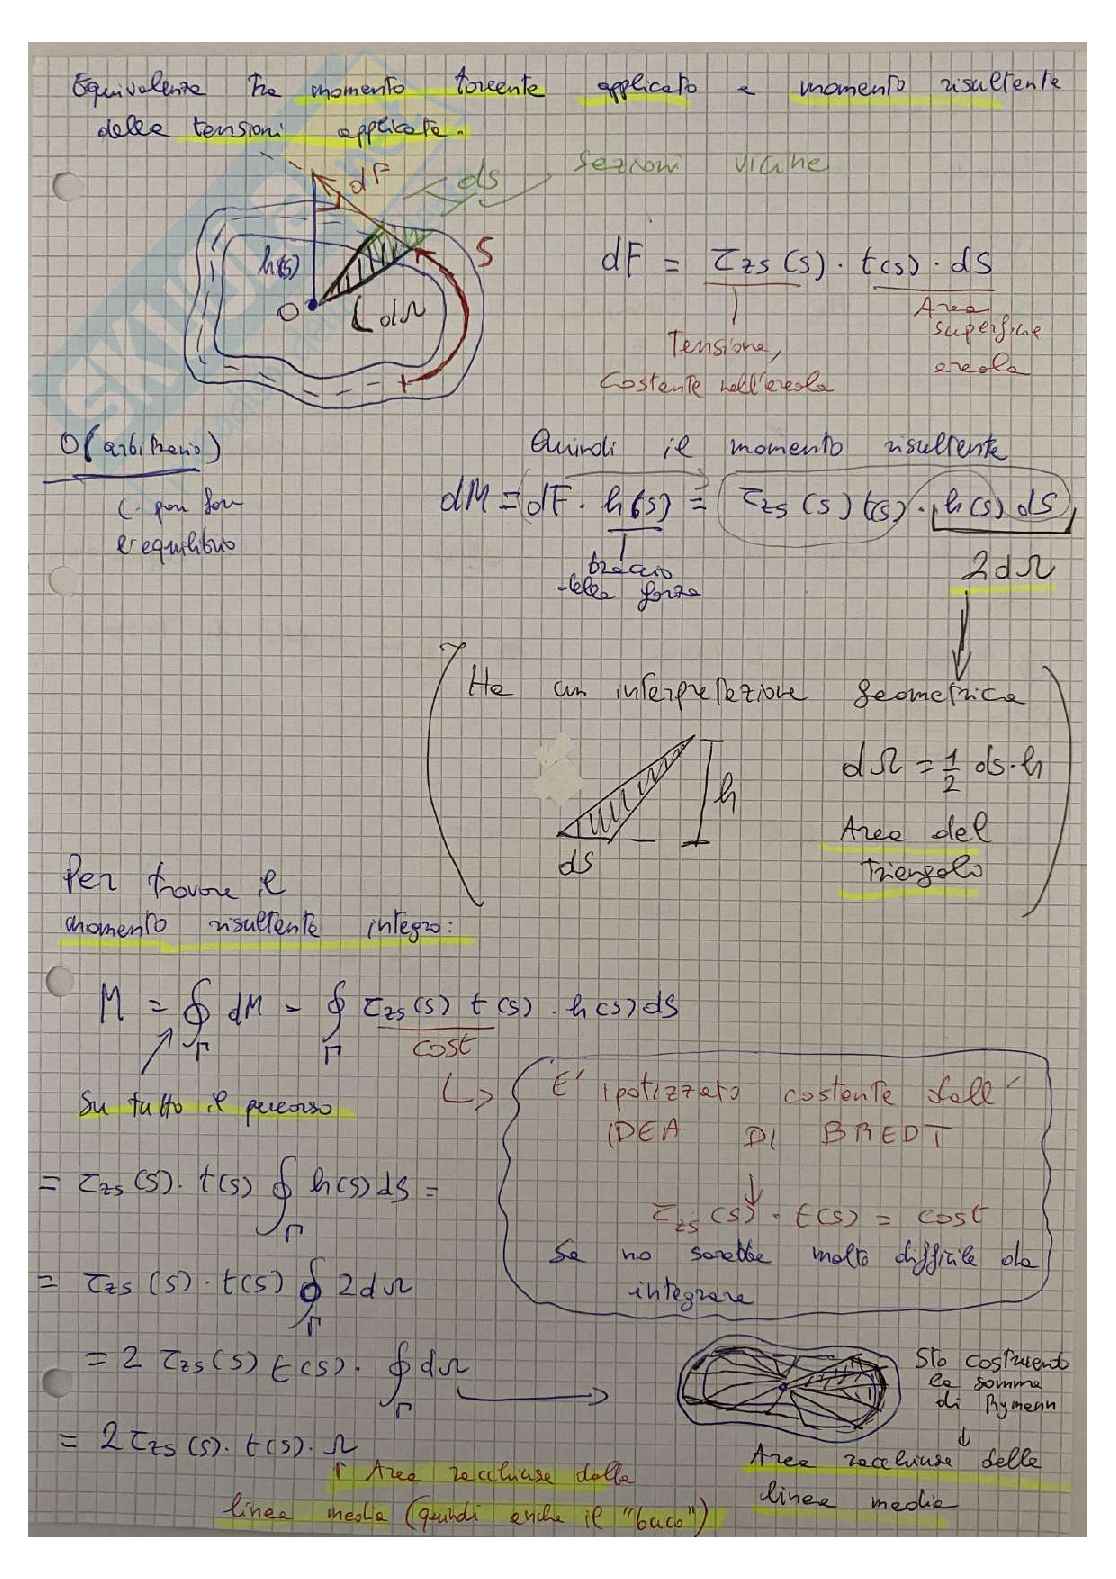 Equivalenza tra momento torcente applicato e momento risultante
delle tensioni applicate.
dF
ds
sezioni vicine
h(s)
S
O
dΩ
dF = τzs(s) · t(s) · dS
Tensione,
costante nell'areola
Area
superficie
areola
O(arbitrario)
Quindi il momento risultante
dM = dF · h(s) = τzs(s) t(s) · h(s) dS
l'equilibrio
braccio
della forza
2dΩ
Ha un interpretazione geometrica
dΩ = 1/2 ds·h
h
dS
Area del
triangolo
Per trovare il
momento risultante integro:
M = ∮Γ dM = ∮Γ τzs(s) t(s) · h(s) dS
cost
Su tutto il percorso
E' ipotizzato costante dall'
IDEA DI BREDT
τzs(s) · t(s) = cost
Se no sarebbe molto difficile da
integrare
= τzs(s) · t(s) ∮Γ h(s) dS =
= τzs(s) · t(s) ∮Γ 2dΩ
= 2 τzs(s) t(s) · ∮Γ dΩ
Sto costruendo
la somma
di Rymann
= 2 τzs(s) · t(s) · Ω
Area racchiusa della
linea media
↑ Area racchiusa dalla
linea media (quindi anche il "buco")